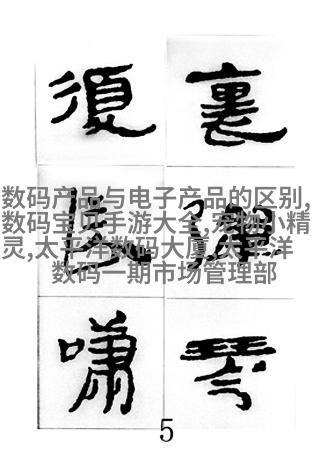 裏彈琴
復長嘯
数码产品与电子产品的区别,
数码宝贝手游大全,宠物小精
灵,太平洋数码大厦,太平洋
数码一期市场管理部
5